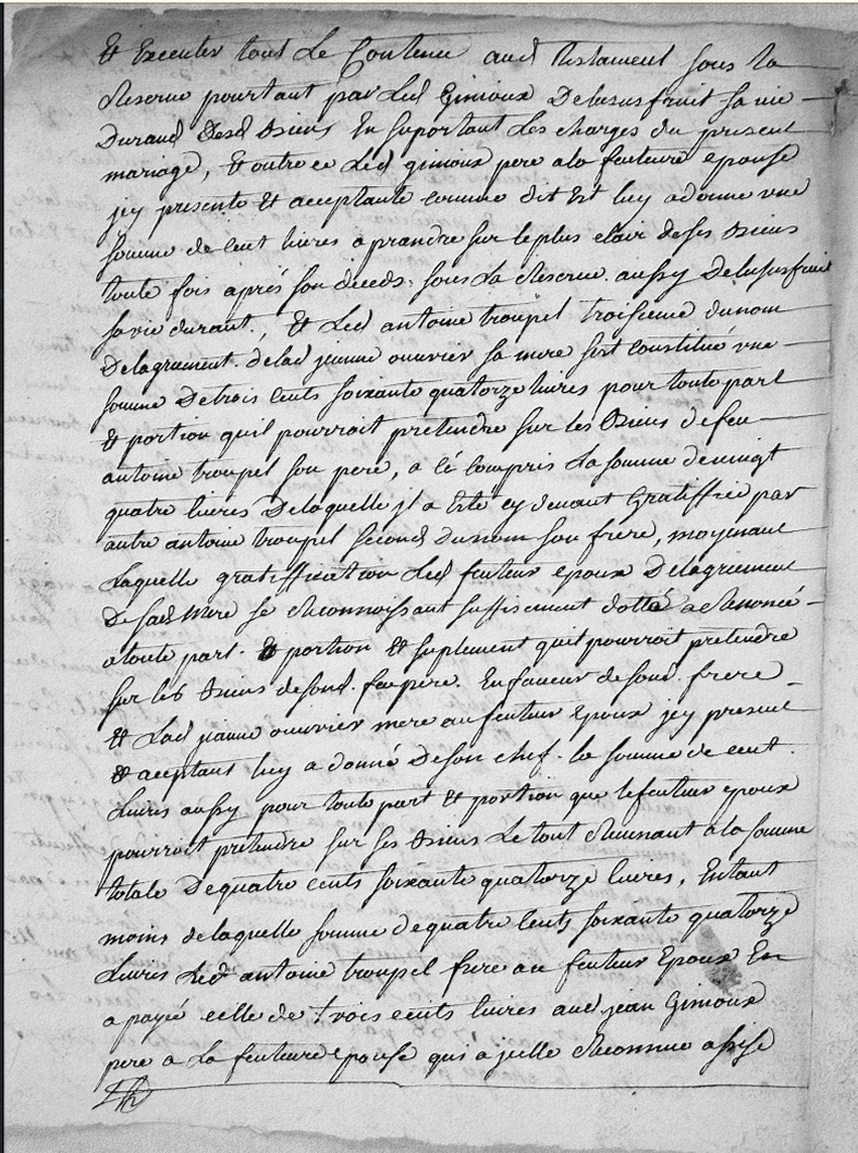 Et Executer tout Le Contenu aud testament sous la
Reserve pourtant par Led Gimoux Delusufruit sa vie
Durand Desd Biens En suportant Les charges du present
mariage, Et outre ce Led gimoux pere a la fenteure epouse
jcy presente & aceptante comme dit Est luy a donne vne
somme de cent livres a prandre sur le plus clair de ses Biens
toute fois aprés son deceds, sous La Reserve aussy Delusufruit
sa vie durant, Et Led antoine troupel troisieme du nom
Delagrement de lad jeanne ouvrier sa mere sest constitué vne
somme De trois cents soixante quatorze livres pour toute part
& portion quil pourroit pretendre sur les Biens de feu
antoine troupel son pere, a cé compris La somme de vingt
quatre livres De laquelle jl a Esté cy devant Gratiffié par
autre antoine troupel second du nom son frere, moyenant
Laquelle gratiffication Led fenteur epoux Delagriement
De sad Mere se Reconnoissant suffisement dotté a Renoncé
a toute part & portion & suplement quil pourroit pretendre
sur les Biens de sond. feu pere. En faveur de sond. frere
& Lad jeanne ouvrier mere au fenteur epoux jcy present
& aceptant luy a donné De son chef la somme de cent
Livres aussy pour toute part & portion que le fenteur epoux
pourroit pretendre sur ses Biens Le tout Revenant a la somme
totale De quatre cents soixante quatorze livres, En tant
moins de laquelle somme de quatre cents soixante quatorze
Livres Led antoine troupel frere au fenteur Epoux En
a payé celle de trois cents livres aud jean Gimoux
pere a La fenteure epouse qui a jcelle Reconnue assise